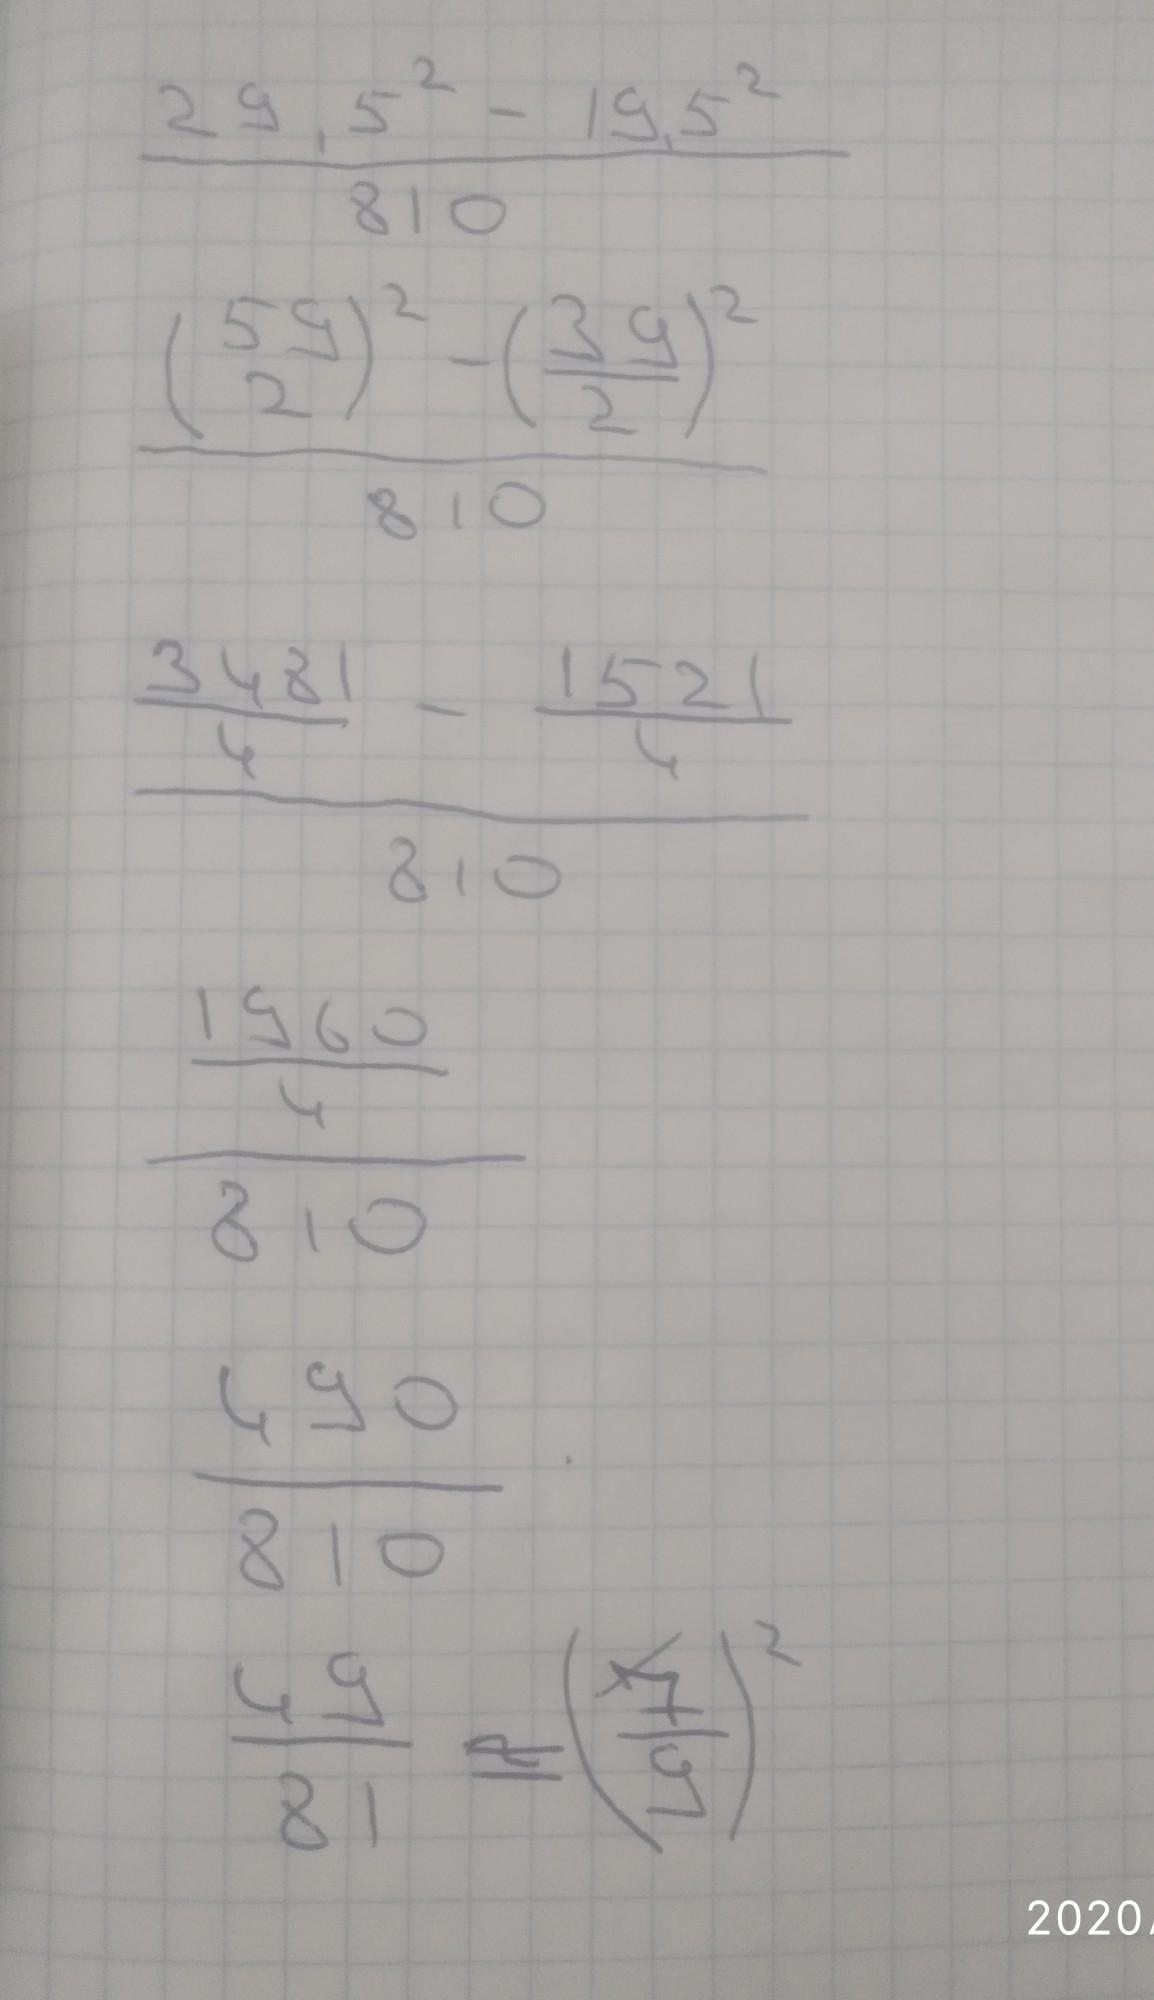 29,5² - 19,5²
810
(59/2)² - (39/2)²
810
3481/4 - 1521/4
810
1960
4
810
490
810
49/81 = (7/9)²
2020/